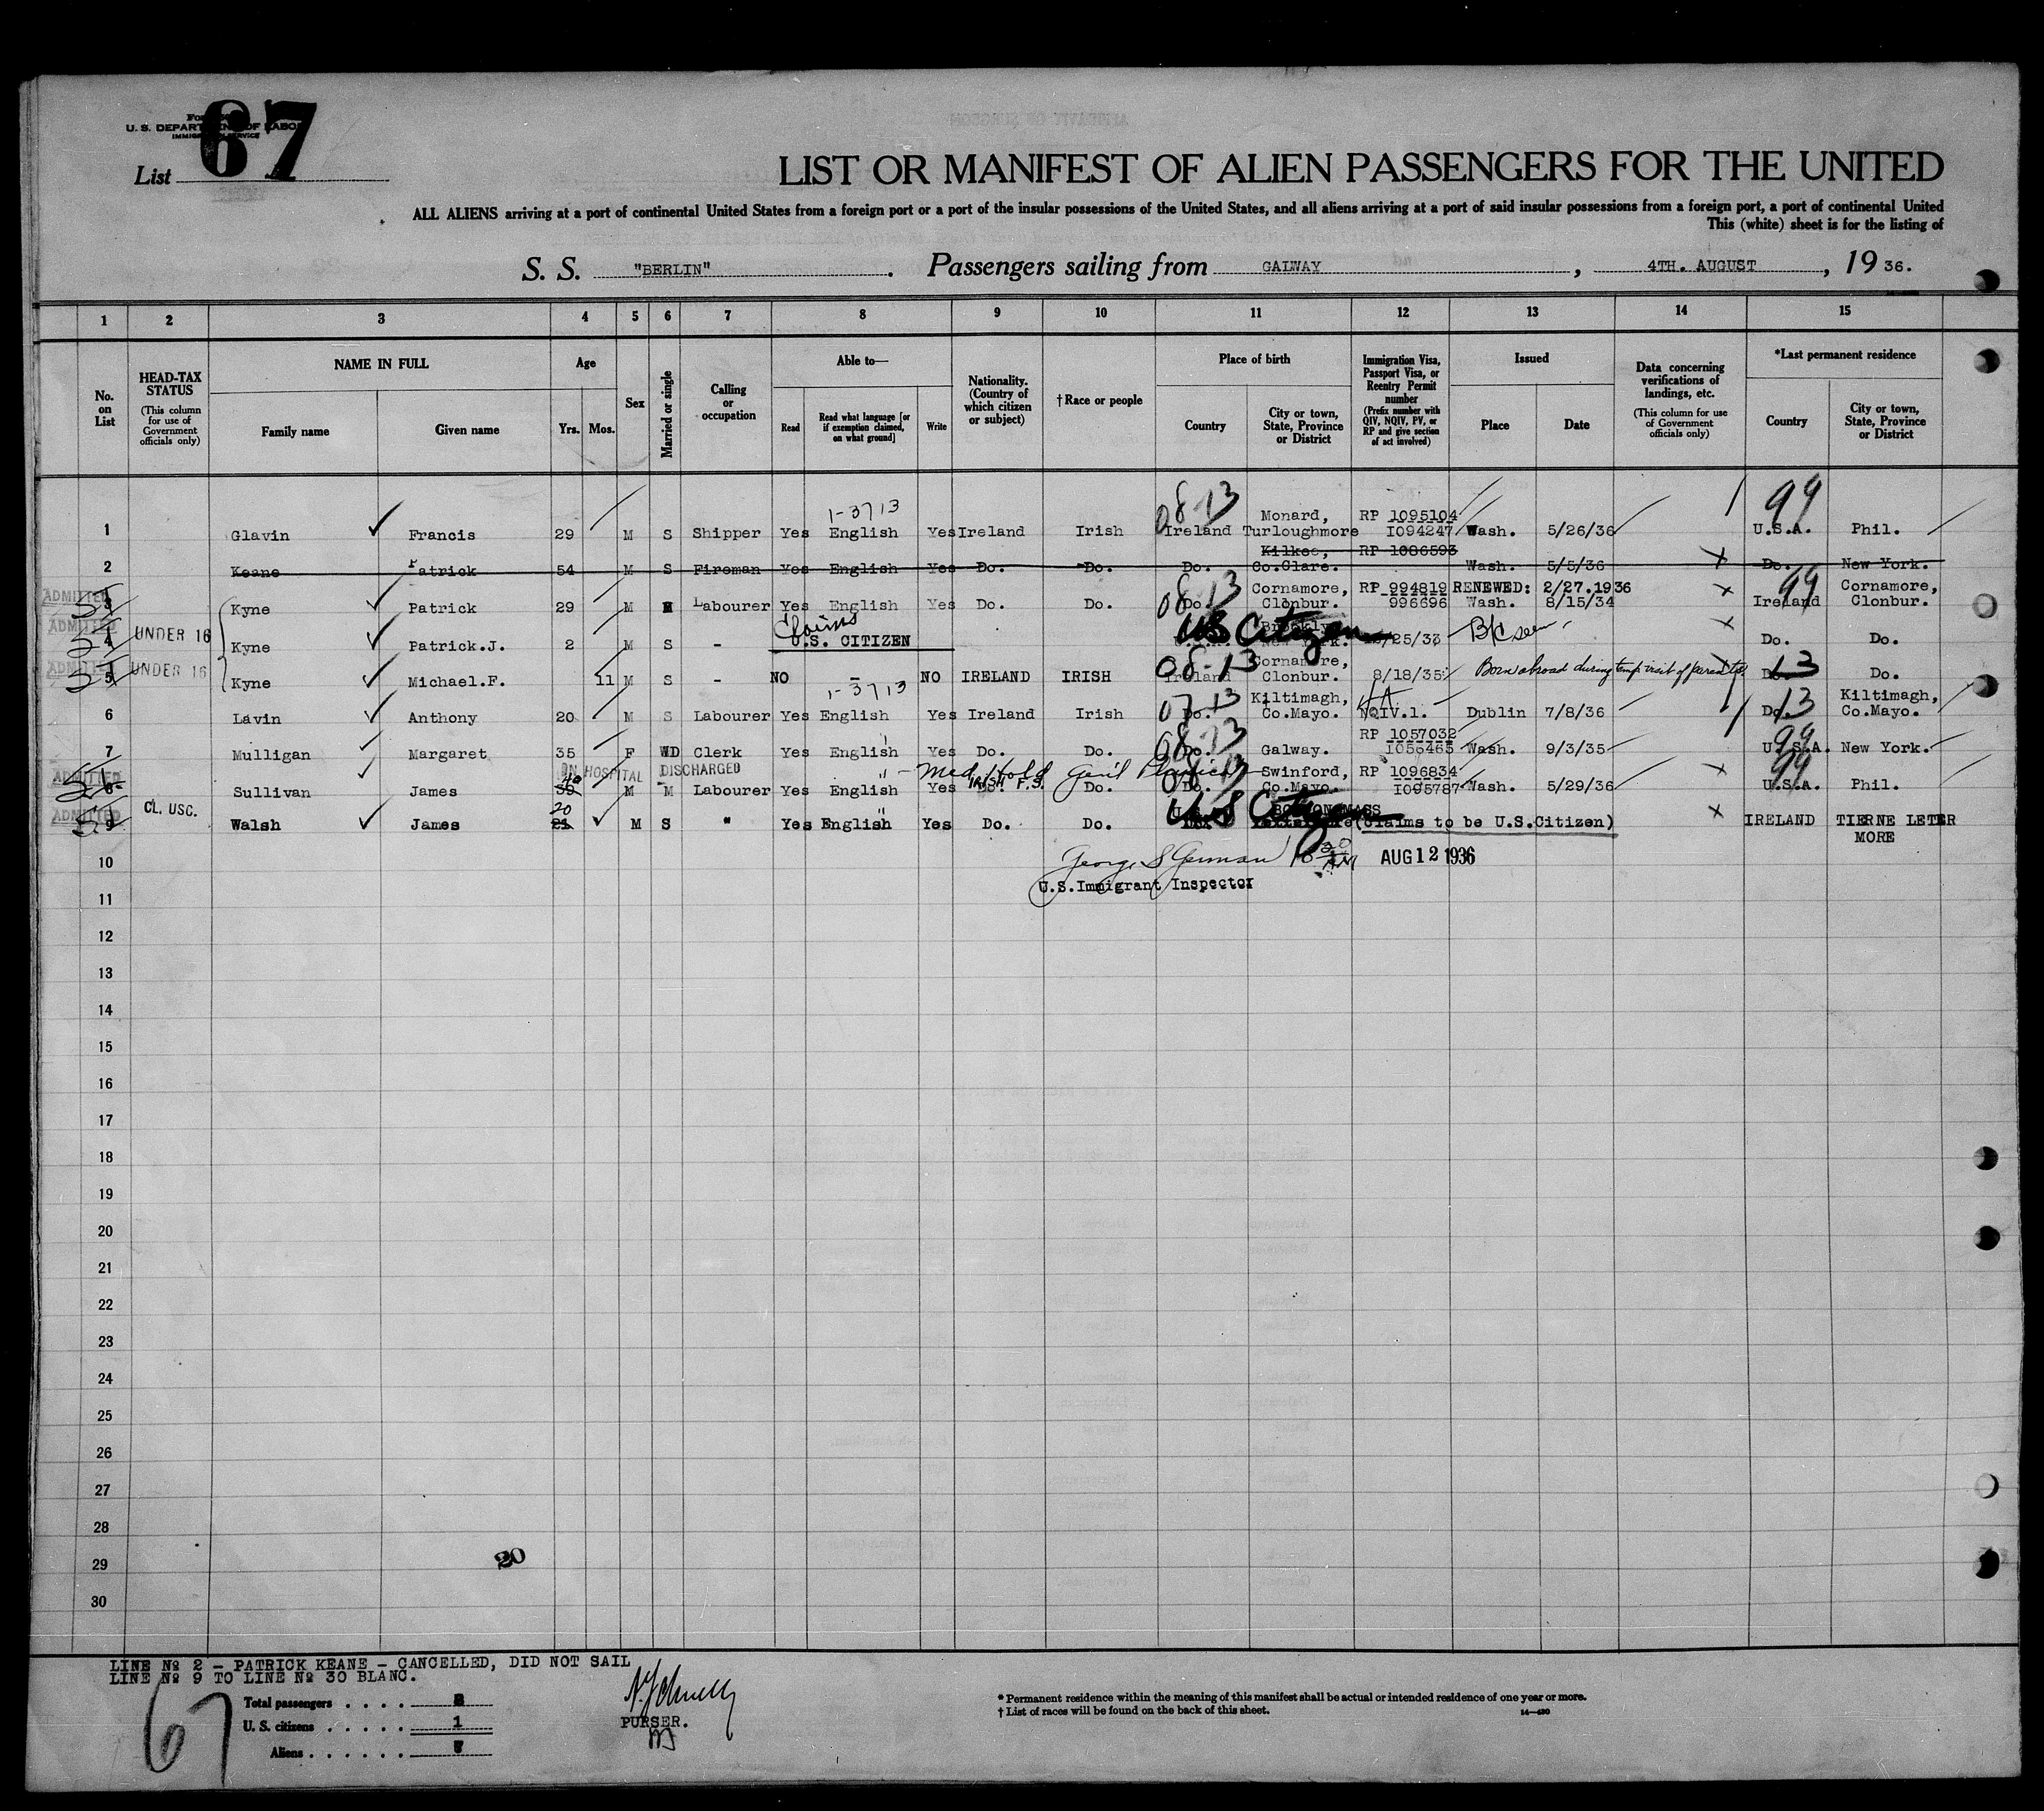 Form
U. S. DEPARTMENT OF LABOR
IMMIGRATION SERVICE
List 67
LIST OR MANIFEST OF ALIEN PASSENGERS FOR THE UNITED
ALL ALIENS arriving at a port of continental United States from a foreign port or a port of the insular possessions of the United States, and all aliens arriving at a port of said insular possessions from a foreign port, a port of continental United
This (white) sheet is for the listing of
S. S. "BERLIN". Passengers sailing from GALWAY, 4TH. AUGUST, 19 36.
1 2 3 4 5 6 7 8 9 10 11 12 13 14 15
No. on List
HEAD-TAX STATUS
(This column for use of Government officials only)
NAME IN FULL
Family name Given name
Age
Yrs. Mos.
Sex
Married or single
Calling or occupation
Able to—
Read
Read what language [or if exemption claimed, on what ground]
Write
Nationality. (Country of which citizen or subject)
† Race or people
Place of birth
Country
City or town, State, Province or District
Immigration Visa, Passport Visa, or Reentry Permit number
(Prefix number with QIV, NQIV, PV, or RP and give section of act involved)
Issued
Place Date
Data concerning verifications of landings, etc.
(This column for use of Government officials only)
*Last permanent residence
Country
City or town, State, Province or District
1-3713 08-13 Monard, RP 1095104 99
1 Glavin Francis 29 M S Shipper Yes English Yes Ireland Irish Ireland Turloughmore 1094247 Wash. 5/26/36 U.S.A. Phil.
Kilkee, RP 1086593
2 Keane Patrick 54 M S Fireman Yes English Yes Do. Do. Do. Co.Clare. Wash. 5/5/36 Do. New York.
ADMITTED 08-13 Cornamore, RP 994819 RENEWED: 2/27.1936 99 Cornamore,
3 Kyne Patrick 29 M M Labourer Yes English Yes Do. Do. Do. Clonbur. 996696 Wash. 8/15/34 Ireland Clonbur.
ADMITTED UNDER 16 Claims US Citizen Brooklyn B/C seen
4 Kyne Patrick.J. 2 M S - U.S. CITIZEN New York. /25/33 Do. Do.
ADMITTED UNDER 16 08-13 Cornamore, Born abroad during temp visit of parents. 13
5 Kyne Michael.F. 11 M S - NO - NO IRELAND IRISH Ireland Clonbur. 8/18/35 Do. Do.
1-3713 07-13 Kiltimagh, 4A 13 Kiltimagh,
6 Lavin Anthony 20 M S Labourer Yes English Yes Ireland Irish Do. Co.Mayo. NQIV.1. Dublin 7/8/36 Do. Co.Mayo.
08-13 RP 1057032 99
7 Mulligan Margaret 35 F WD Clerk Yes English Yes Do. Do. Do. Galway. 1056463 Wash. 9/3/35 U.S.A. New York.
ADMITTED IN HOSPITAL DISCHARGED " Med. Hold Gen'l 08-13 Swinford, RP 1096834 99
8 Sullivan James 40 M M Labourer Yes English Yes IRISH F.S. Do. Do. Co.Mayo. 1095787 Wash. 5/29/36 U.S.A. Phil.
ADMITTED CL. USC. 20 US Citizen BOSTON MASS
9 Walsh James 21 M S " Yes English Yes Do. Do. (Claims to be U.S.Citizen) IRELAND TIERNE LETER
MORE
10 George S German 10 30 AM AUG 12 1936
U.S.Immigrant Inspector
11
12
13
14
15
16
17
18
19
20
21
22
23
24
25
26
27
28
29 20
30
LINE № 2 - PATRICK KEANE - CANCELLED, DID NOT SAIL
LINE № 9 TO LINE № 30 BLANC.
67
Total passengers . . . . 8
U. S. citizens . . . . . 1
Aliens . . . . . .
PURSER.
* Permanent residence within the meaning of this manifest shall be actual or intended residence of one year or more.
† List of races will be found on the back of this sheet.
14—430